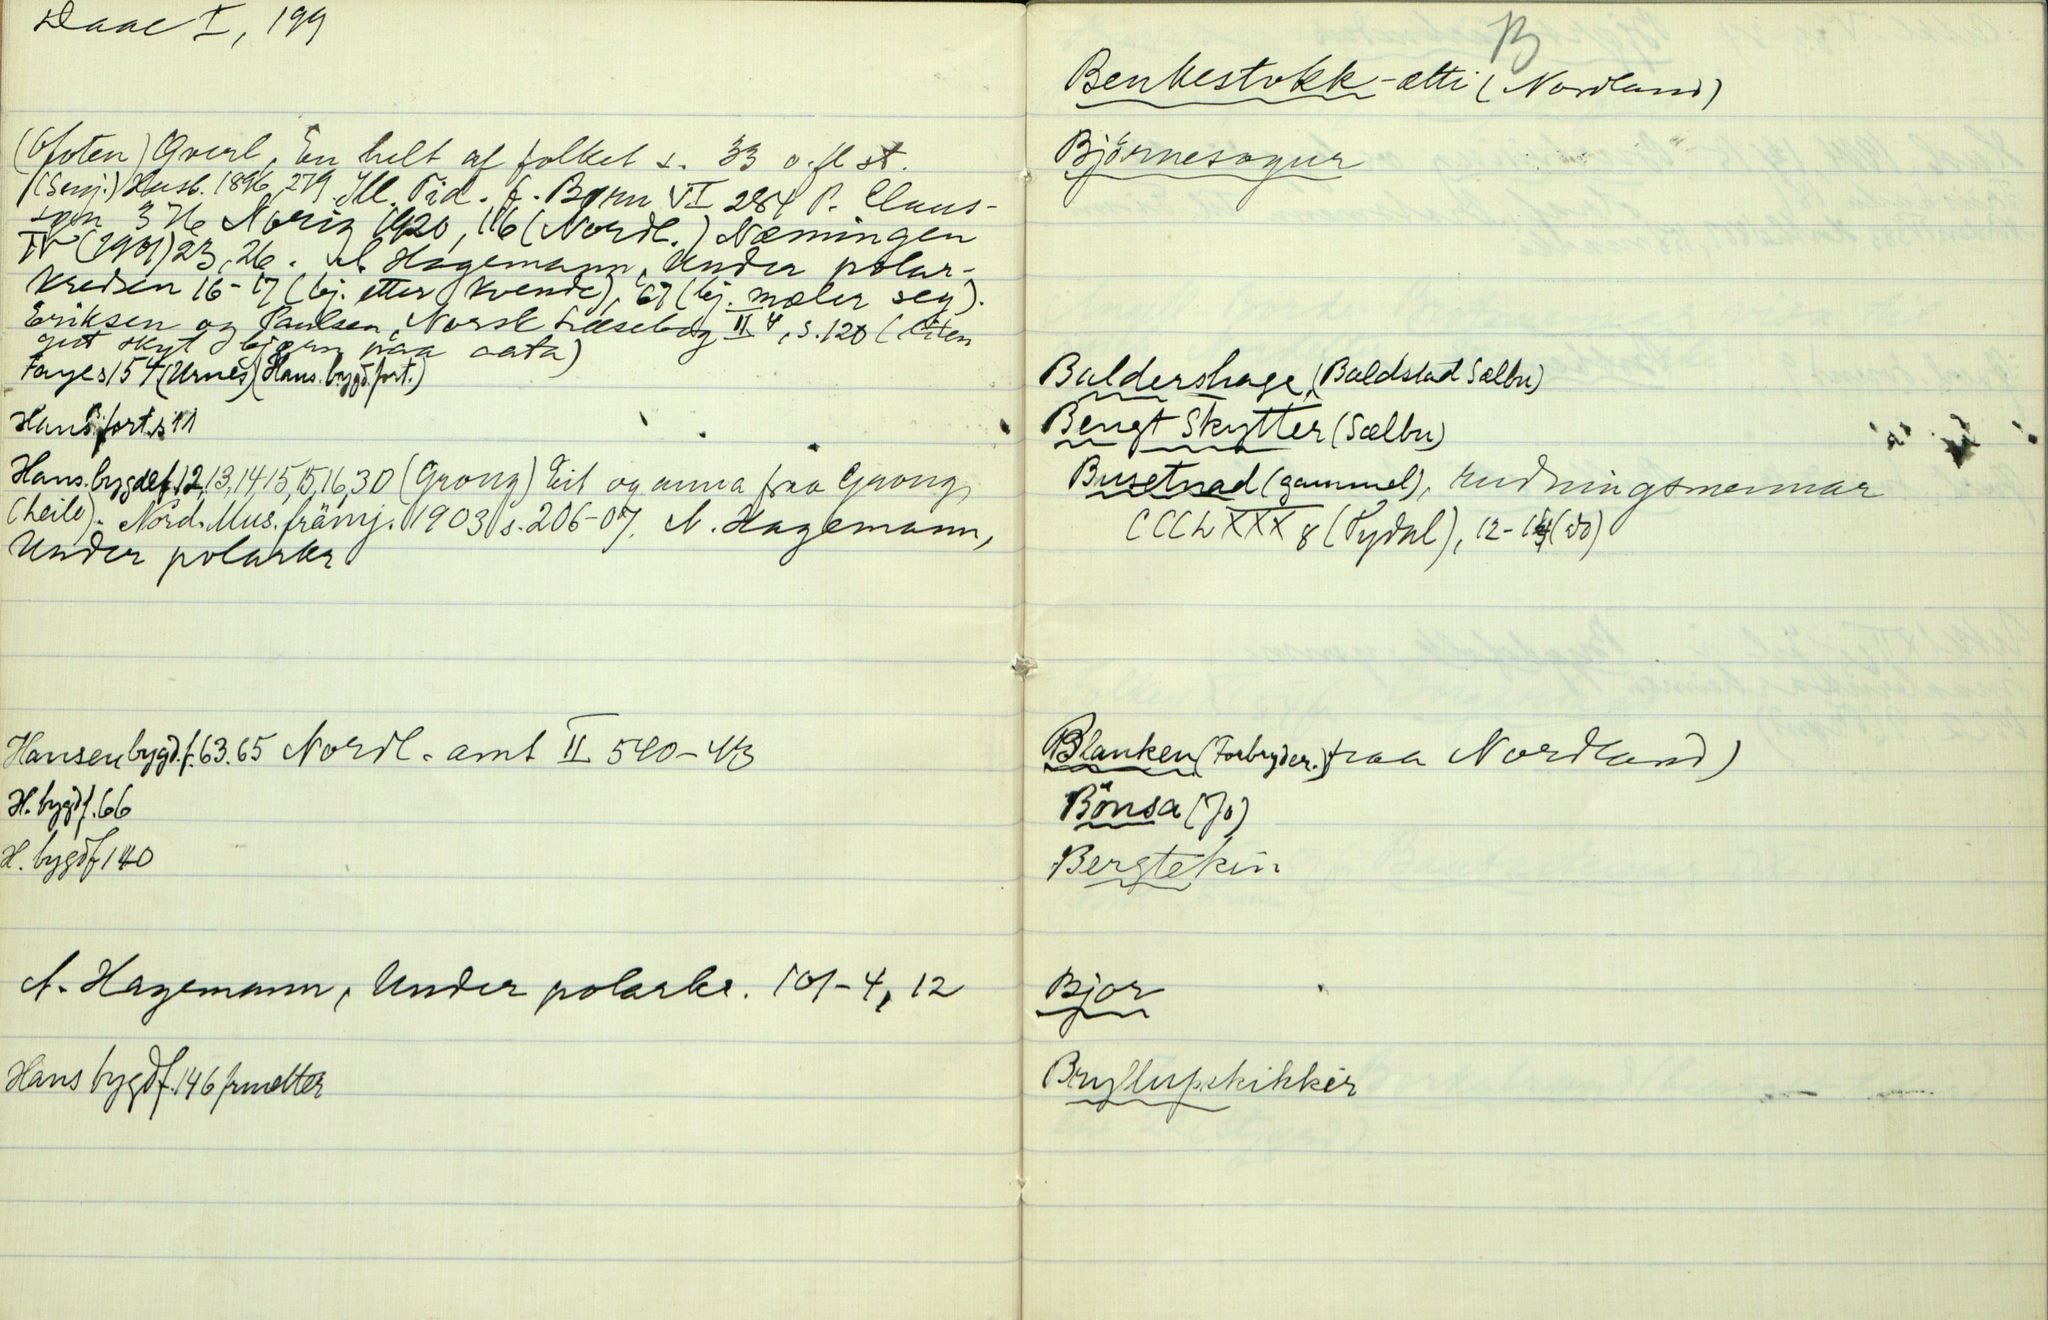 Daae I, 199
(Ofoten) Qverl, En helt af folket s. 33 o. fl st.
(Senj.) Husb. 1896, 279 Ill. Tid. f. Børn VI 284 P. Claus-
søn 376 Norig 1920, 116 (Nordl.) Næmingen
IV (1901) 23, 26. A. Hagemann, Under polar-
kredsen 16-17 (bj. etter kvende), 67 (bj. mæler seg).
Eriksen og Paulsen, Norsk Læsebog II 4, s. 120 (liten
gut skyt bjørn paa aata)
Fayes 154 (Urnes) (Hans. bygd. fort.)
Hans fort. s 11
Hans. bygdef. 12, 13, 14, 15, 15, 16, 30 (Grong) Eit og anna fraa Grong,
(Leile). Nord. Mus. främj. 1903 s. 206-07. A. Hagemann,
Under polarkr
Hansen bygd. f. 63. 65 Nordl. amt II 540-43
H. bygd f. 66
H. bygdf 140
A. Hagemann, Under polarkr. 101-4, 12
Hans bygdf. 146 frmetter
B
Benkestokk-ætti (Nordland)
Björnesogur
Baldershage, (Baldstad Sælbu)
Bengt Skytter (Sælbu)
Busetnad (gammel), rudningsmennar
CCCLXXX 8 (Tydal), 12-14 (do)
Blanken (Forbryder.) fraa Nordland)
Bönsa (Jo)
Bergtekin
Bjor
Bryllupskikker